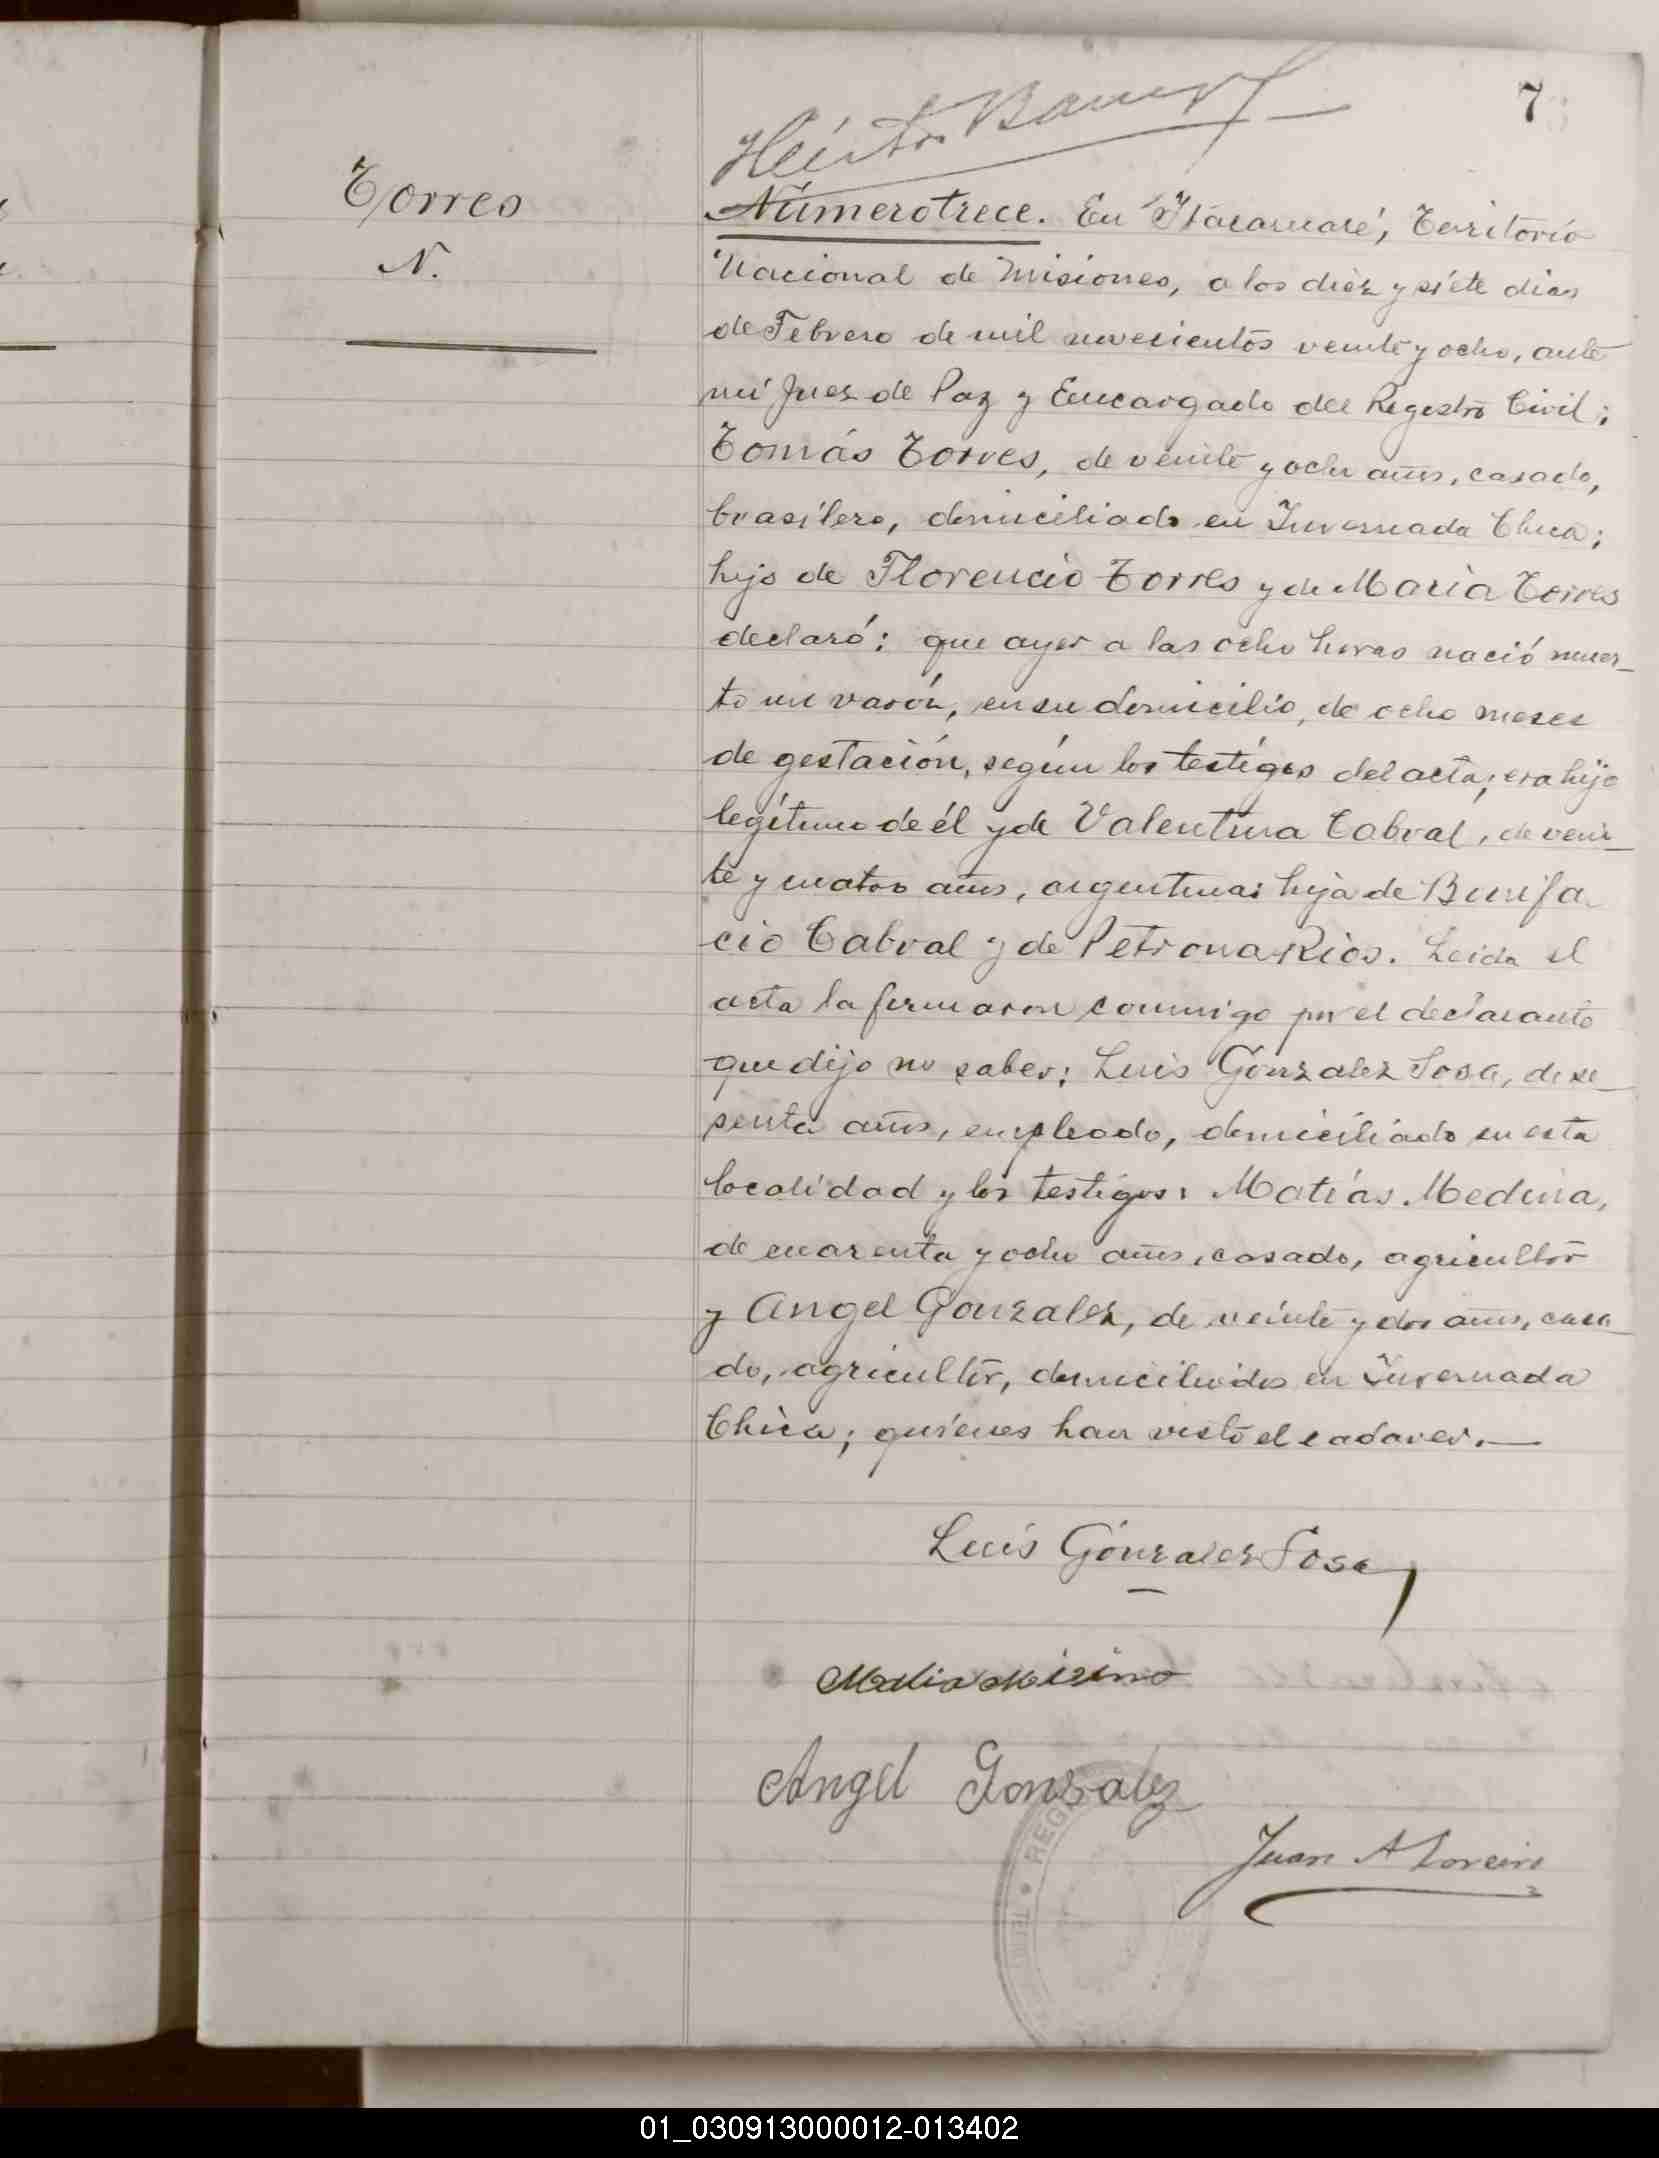 7
Torres
N.
Número trece. En Itacaruaré, Territorio
Nacional de Misiones, a los diez y siete dias
de Febrero de mil novecientos veinte y ocho, ante
mi Juez de Paz y Encargado del Registro Civil;
Tomás Torres, de veinte y ocho años, casado,
brasilero, domiciliado en Invernada Chica;
hijo de Florencio Torres y de Maria Torres
declaró: que ayer a las ocho horas nació muer-
to un varón, en su domicilio, de ocho meses
de gestación, según los testigos del acta; era hijo
legítimo de él y de Valentina Cabral, de vein-
te y cuatro años, argentina; hija de Bonifa-
cio Cabral y de Petrona Rios. Leida el
acta la firmaron conmigo por el declarante
que dijo no saber: Luis Gonzalez Sosa, de se-
senta años, empleado, domiciliado en esta
localidad y los testigos: Matías Medina,
de cuarenta y ocho años, casado, agricultor
y Angel Gonzalez, de veinte y dos años, casa-
do, agricultor, domiciliados en Invernada
Chica; quienes han visto el cadaver.—
Luis Gónzalez Sosa
Angel Gonzalez
REG
Juan A Loreiro
01_030913000012-013402